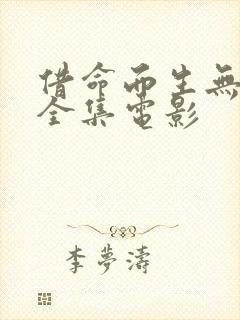 借命而生無
全集電影
李夢濤